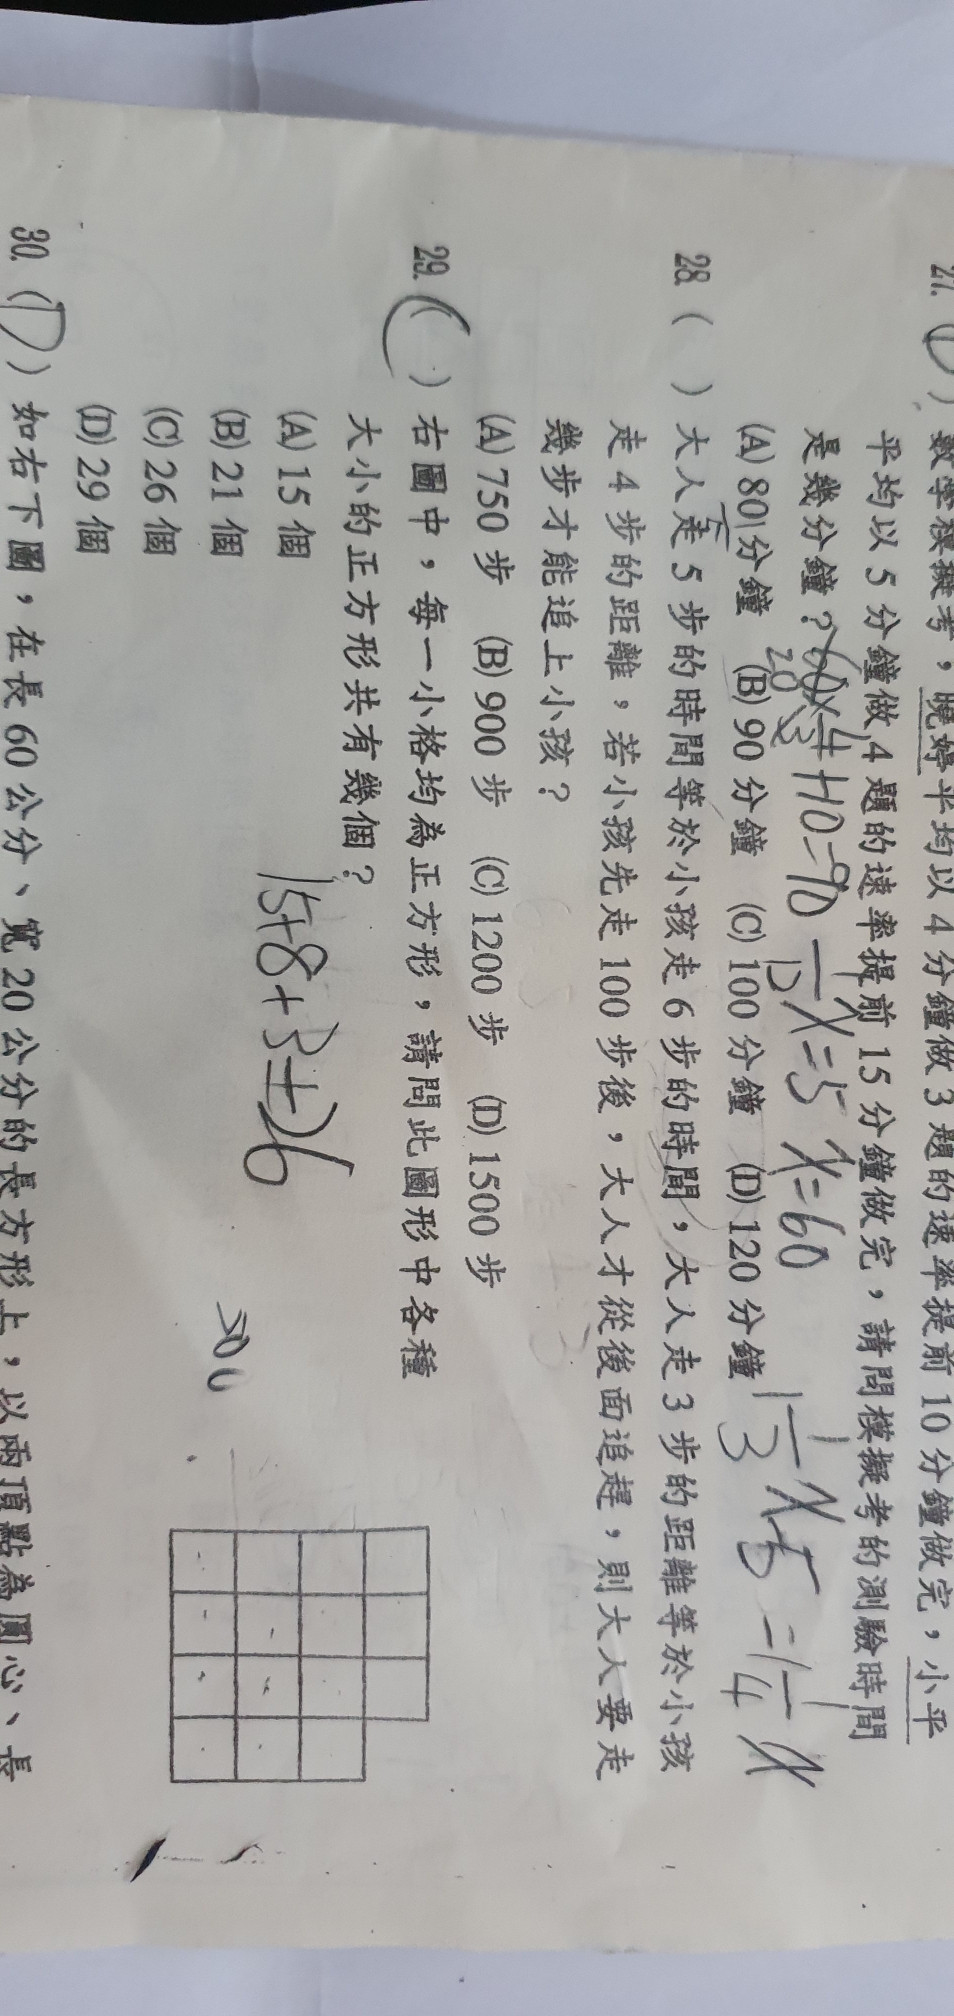 27. (D) 數學模擬考，曉婷平均以 4 分鐘做 3 題的速率提前 10 分鐘做完，小平
平均以 5 分鐘做 4 題的速率提前 15 分鐘做完，請問模擬考的測驗時間
是幾分鐘？
(A) 80 分鐘 (B) 90 分鐘 (C) 100 分鐘 (D) 120 分鐘
x=5 x=60
28. ( ) 大人走 5 步的時間等於小孩走 6 步的時間，大人走 3 步的距離等於小孩
走 4 步的距離。若小孩先走 100 步後，大人才從後面追趕，則大人要走
幾步才能追上小孩？
(A) 750 步 (B) 900 步 (C) 1200 步 (D) 1500 步
29. (C) 右圖中，每一小格均為正方形，請問此圖形中各種
大小的正方形共有幾個？
(A) 15 個
15+8+3=26
(B) 21 個
(C) 26 個
(D) 29 個
30. (D) 如右下圖，在長 60 公分、寬 20 公分的長方形上，以兩頂點為圓心、長